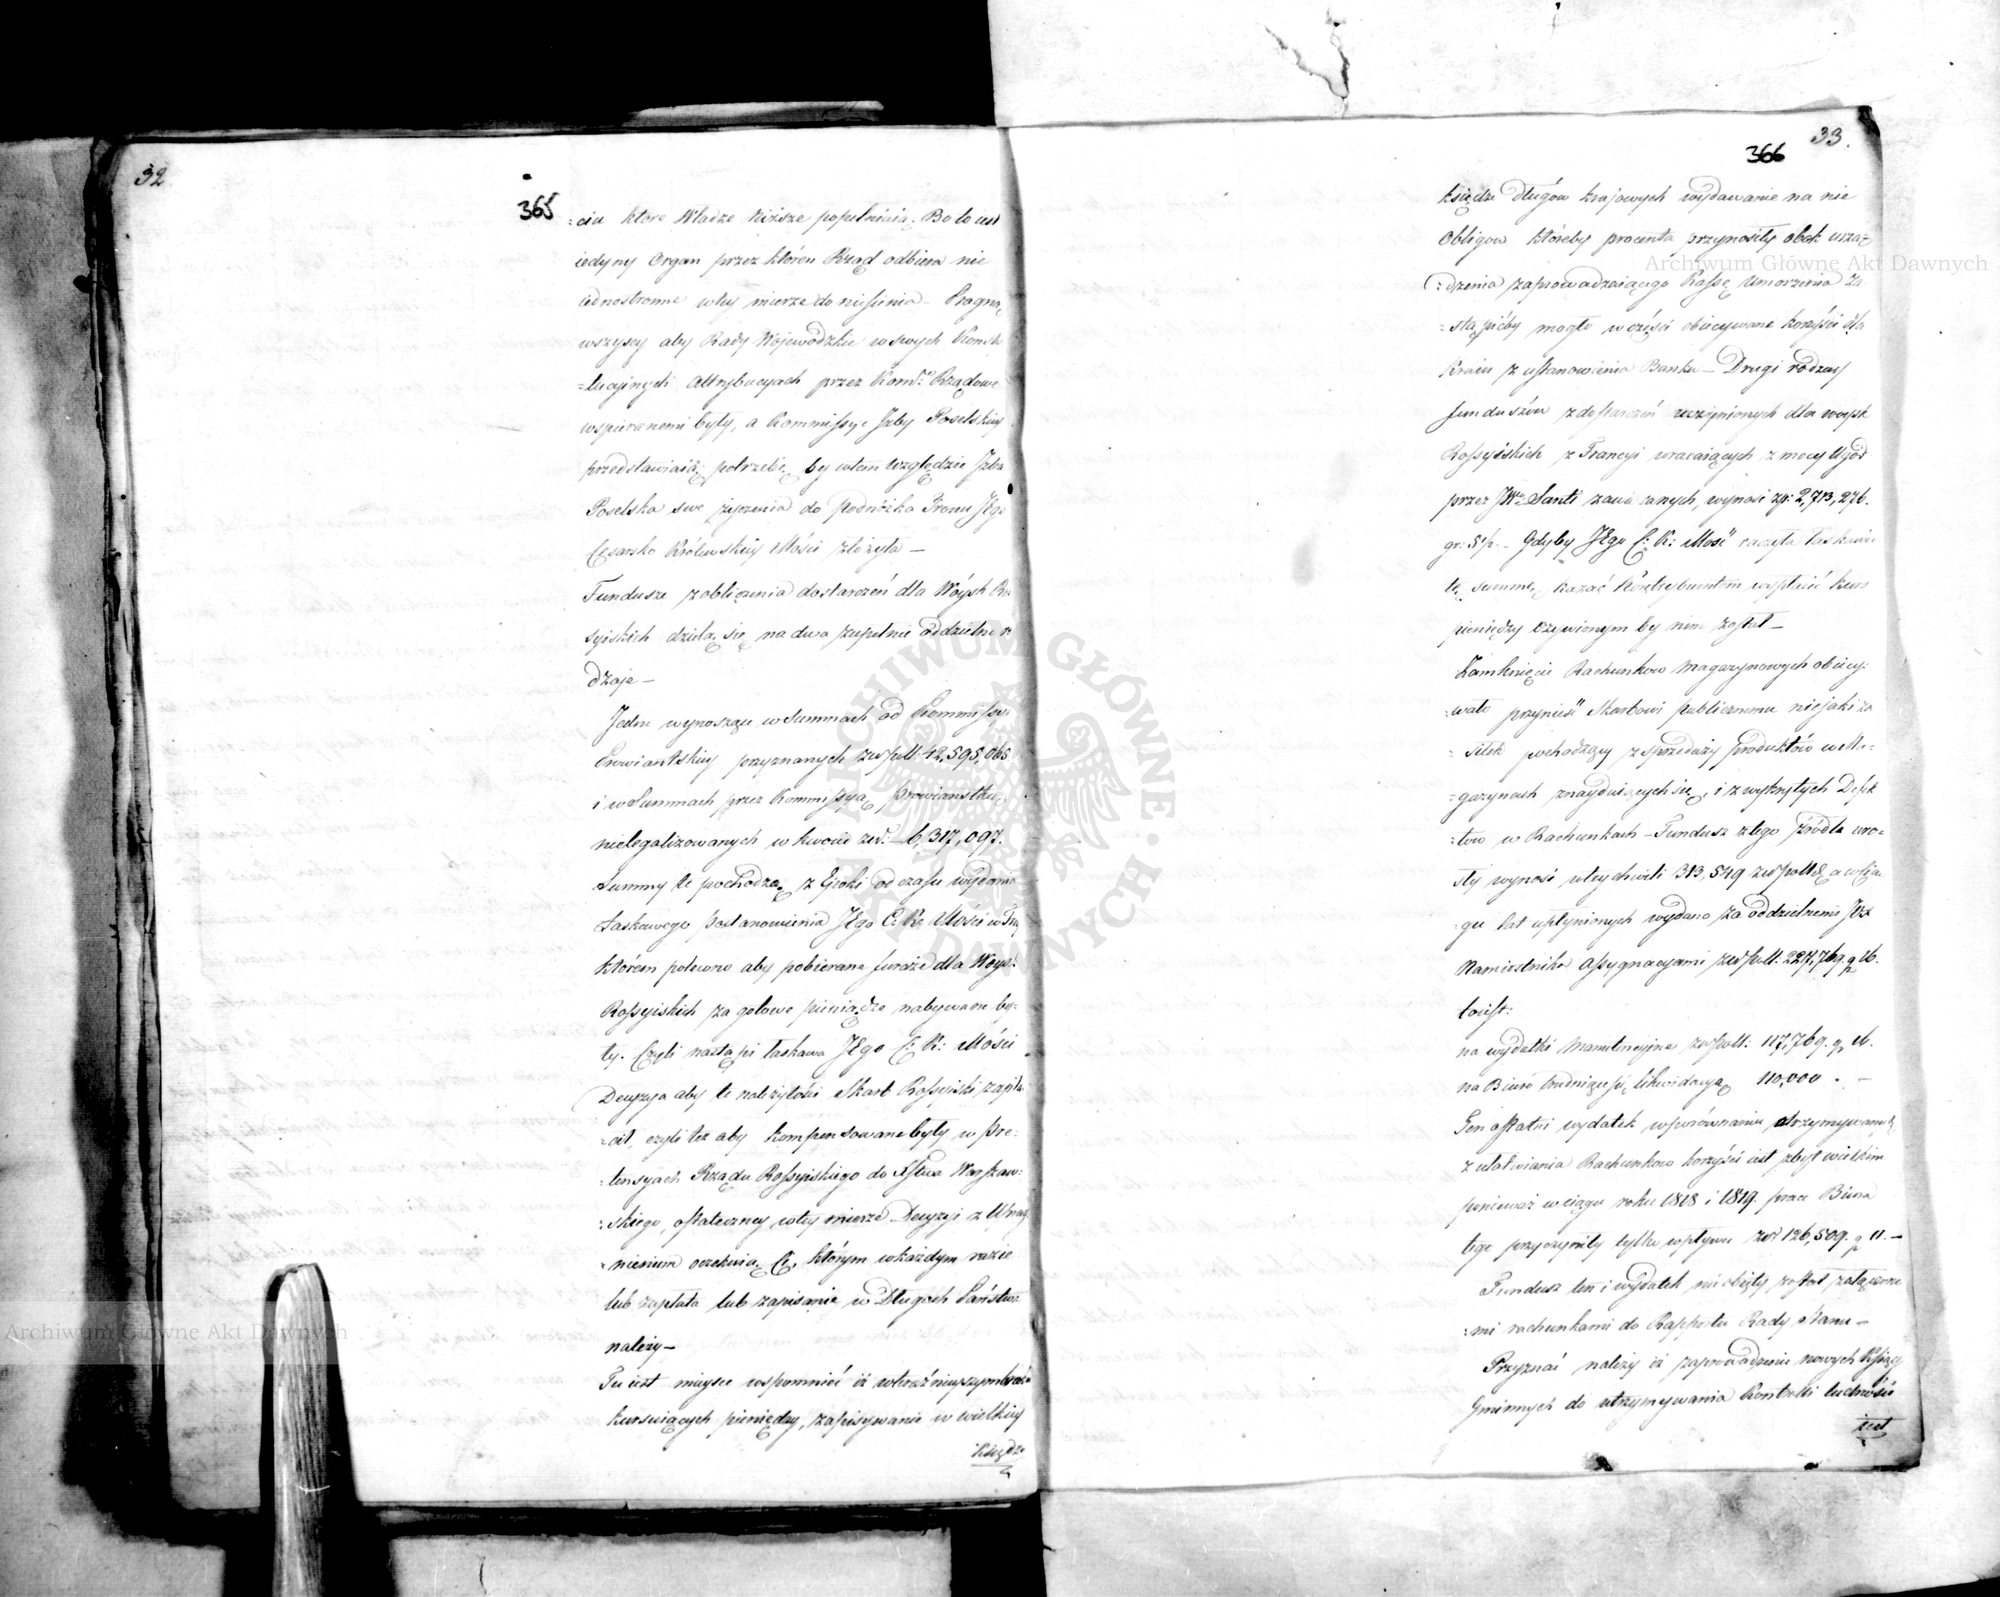 32
365
=cia które Władze niższe popełniaią. Bo to iest
iedyny Organ przez któren Rząd odbiera nie
iednostronne w tey mierze doniesienia – Pragną
wszyscy aby Rady Wojewódzkie w swych Konsty
=tucyinych attrybucyach przez Kom: Rządowe
wspieranemi były, a Kommissye Jzby Poselskiey
przedstawiaią potrzebę, by w tem względzie Jzba
Poselska swe życzenia do podnóżka Tronu JEgo
Cesarsko Królewskiey Mości złożyła –
Fundusze z obliczenia dostarczeń dla Woysk Ros
syiskich dzielą się na dwa zupełnie oddzielne ro
dzaje –
Jeden wynoszący w Summach od Kommissyi
Prowiantskiey przyznanych złpoll: 42,595,065
i w Summach przez Kommissyą Prowiantską
nielegalizowanych w kwocie złł: 6,317,097.
Summy te pochodzą z Epoki od czasu wydania
Łaskawego postanowienia JEgo C: K: Mości
którem polecono aby pobierane furaże dla Woys:
Rossyiskich za gotowe pieniądze nabywane by=
ły. Czyli nastąpi łaskawa JEgo C: K: Mości
Decyzya aby te należytości Skarb Rossyiski zapła
=cił, czyli też aby kompensowane były w Pre=
=tensyach Rządu Rossyiskiego do Xstwa Warszaw=
=skiego, ostateczney w tey mierze Decyzyi z Upragn
=nieniem oczekuią Ci, którym w każdym razie
lub zapłata lub zapisanie w Długach Państwa
należy –
Tu iest mieysce wspomnieć iż w teraźnieyszym
kursuiących pieniędzy, zapisywanie w wielkiey
Księdze
366
33.
księdze długów krajowych wydawanie na nie
Obligow któreby procenta przynosiły obok urzą=
=dzenia zaprowadzaiącego Kassę Umorzenia Za
=stąpićby mogło w części obiecywane korzyści dla
Kraiu z ustanowienia Banku – Drugi rodzay
funduszów z dostarczeń uczynionych dla woysk
Rossyiskich z Francyi wracaiących z mocy Ugod
przez JW: Santi zawieranych, wynosi zł: 2,713,276.
gr: 5½. – Gdyby JEgo C: K: Mość raczyła łaskawie
tę summę kazać Kontrybuentom wypłacić kurs
pieniędzy ożywionym by nim został –
Zamknięcie Rachunkow Magazynowych obiecy=
=wało przynieść Skarbowi publicznemu niejaki za
=siłek pochodzący z sprzedaży produktów w Ma=
=gazynach znayduiących się, i z wykrytych Defek
=tow w Rachunkach – Fundusz z tego źródła uro=
sły wynosi w tey chwili 313,549 złpoll: a w cią
=gu lat upłynionych wydano za oddzielnemi JX
Namiestnika Assygnacyami złpoll: 227,769. g. 16.
toiest:
na wydatki Manutencyjne złpoll: 117,769. g. 16.
na Biuro trudniące się likwidacyą 110,000. –
Ten ostatni wydatek w porównaniu otrzymywanych
z ułatwiania Rachunkow korzyści iest zbyt wielkim
ponieważ w ciągu roku 1818 i 1819 prace Biura
tego przyczyniły tylko wpływu zł 126,509. g 11. –
Fundusz ten i wydatek nieobięty został załączone
=mi rachunkami do Rapportu Rady Stanu –
Przyznać należy iż zaprowadzenie nowych Ksiąg
Gminnych do utrzymywania Kontrolli ludności
iest
Archiwum Główne Akt Dawnych
Archiwum Główne Akt Dawnych
ARCHIWUM GŁÓWNE AKT DAWNYCH